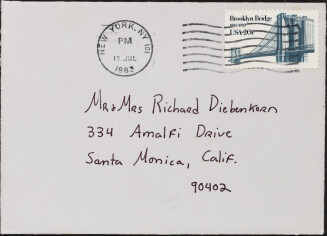 NEW YORK, NY 101
PM
15 JUL
1983
Brooklyn Bridge
1883-1983
USA 20c
Mr & Mrs Richard Diebenkorn
334 Amalfi Drive
Santa Monica, Calif.
90402